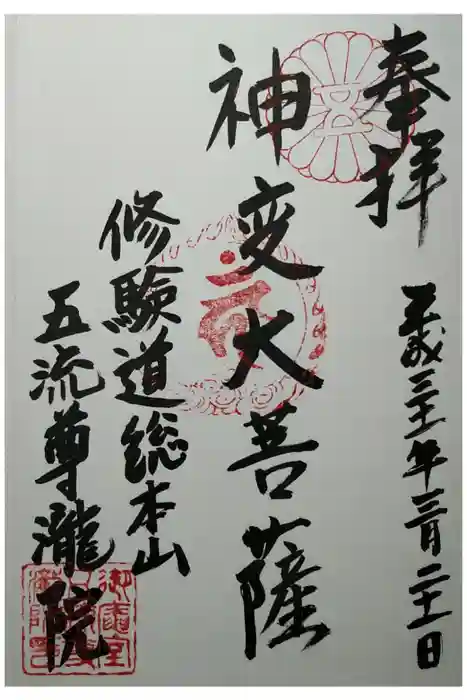 奉拝
平成三十一年三月二十一日
神変大菩薩
修験道総本山
五流尊瀧院
五